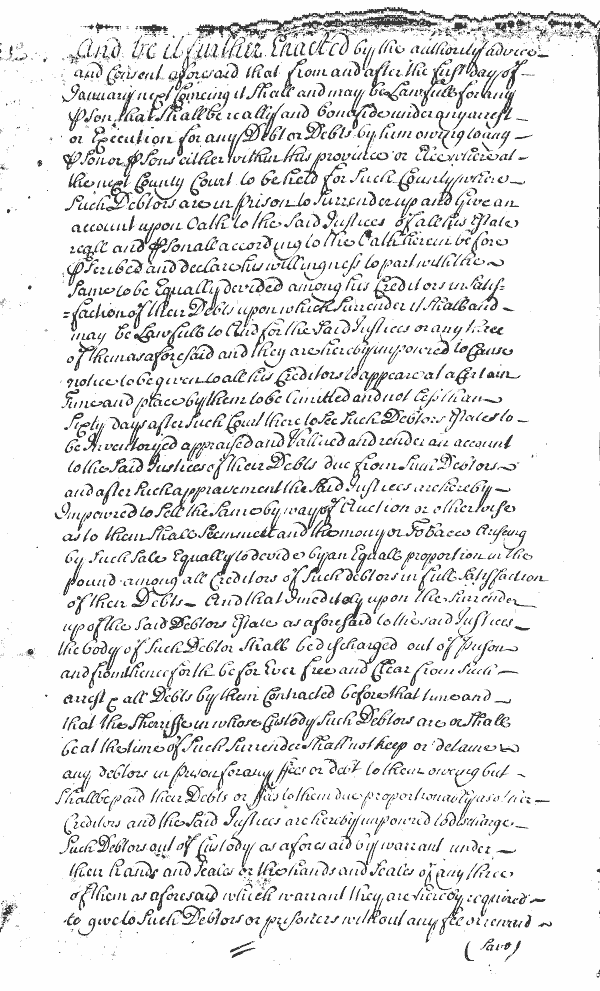 And be it further Enacted by the authority advice
and Consent aforesaid that from and after the first day of
January next Comeing it Shall and may be Lawfull for any
Pson that Shall be really and bonefide under any arrest
or Execution for any Debt or Debts by him owing to any
Pson or Psons either within this province or Elsewhere at
the next County Court to be held for Such County where
Such Debtors are in prison to Surrender up and Give an
account upon Oath to the Said Justices of all his Estate
reall and Psonall according to the Oath herein before
Pscribed and declare his willingness to part with the
Same to be Equally devided among his Creditors in Satis-
=faction of their Debts upon which Surrender it Shall and
may be Lawfull to and for the Said Justices or any three
of them as aforesaid and they are hereby impowred to Cause
notice to be given to all his Creditors to appeare at a Certain
Time and place by them to be Limitted and not less than
Sixty days after Such Court there to See Such Debtors Estates to
be Inventoryed appraised and Vallued and render an account
to the Said Justices of their Debts due from Such Debtors
and after Such appraisement the Said Justices are hereby
Impowered to Sell the Same by way of Auction or otherwise
as to them Shall Seem meet and the mony or Tobacco Arising
by Such Sale Equally to devide by an Equall proportion in the
pound among all Creditors of Such debtors in full Satisfaction
of their Debts And that Imeditely upon the Surrender
up of the Said Debtors Estate as aforesaid to the said Justices
the body of Such Debtor Shall be discharged out of Prison
and from thenceforth be for Ever free and Clear from Such
arrest & all Debts by them Contracted before that time and
that the Sherriffe in whose Custody Such Debtors are or Shall
be at the time of Such Surrender Shall not keep or detaine
any debtors in prison for any ffees or debt to them oweing but
Shall be paid their Debts or ffees to them due proportionably as other
Creditors and the Said Justices are hereby impowred to discharge
Such Debtors out of Custody as aforesaid by warrant under
their hands and Seales or the hands and Seales of any three
of them as aforesaid which warrant they are hereby required
to give to Such Debtors or prisoners without any fee or reward